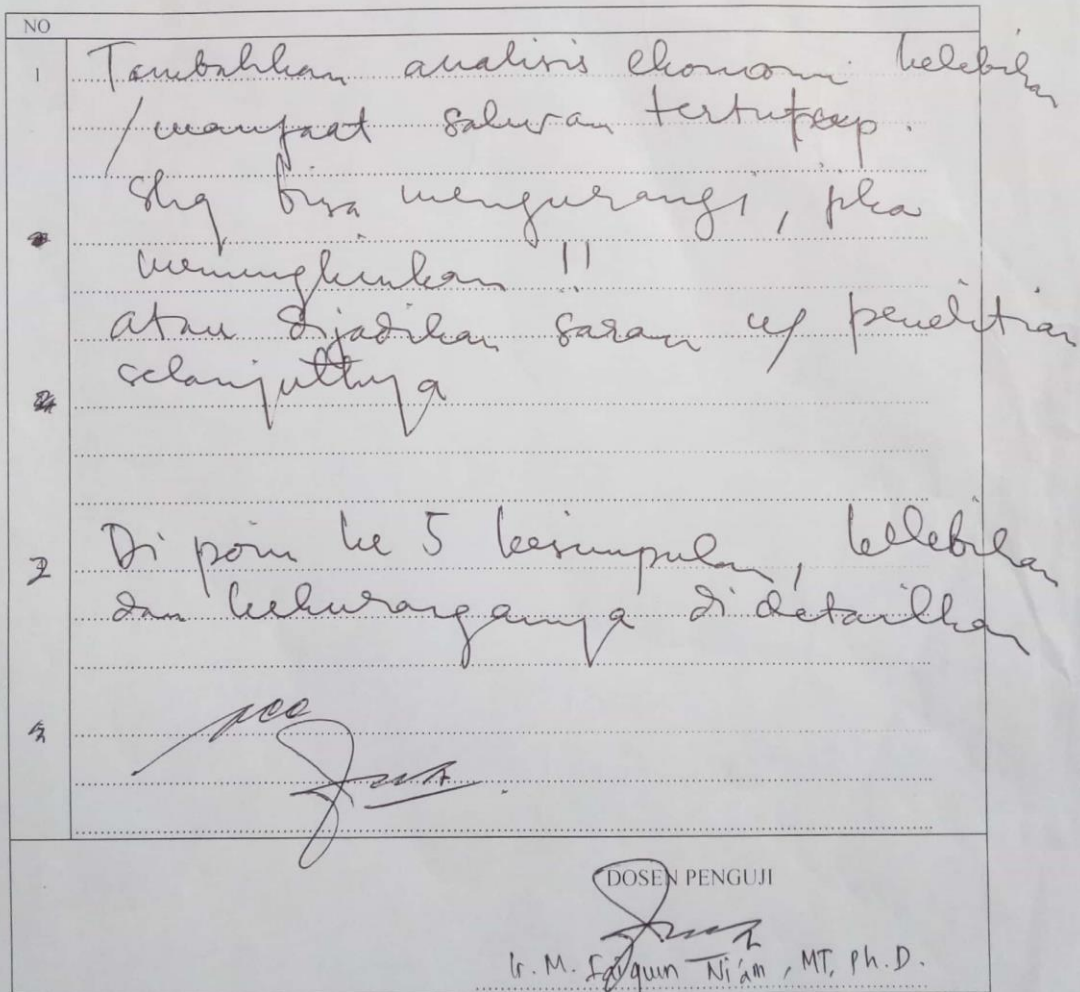 NO
1 Tambahkan analisis ekonomi kelebihan
/manfaat saluran tertutup.
shg bisa mengurangi, jika
memungkinkan !!
atau dijadikan saran u/ penelitian
selanjuttnya
2 Di poin ke 5 kesimpulan, kelebihan
dan kekuranganya di detailkan
acc
DOSEN PENGUJI
Ir. M. Faiqun Ni'am, MT, Ph.D.